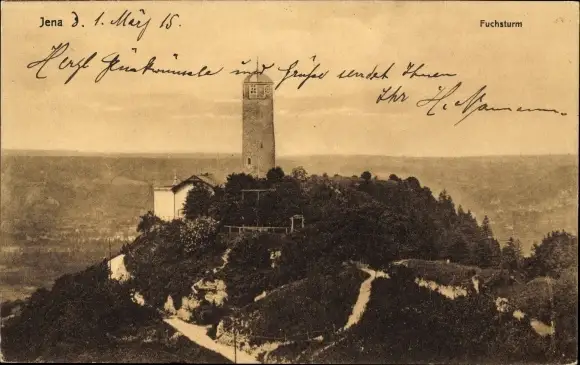 Jena d. 1. März 15.
Fuchsturm
Herzl Glückwünsche und Grüße sendet Ihnen
Ihr H.